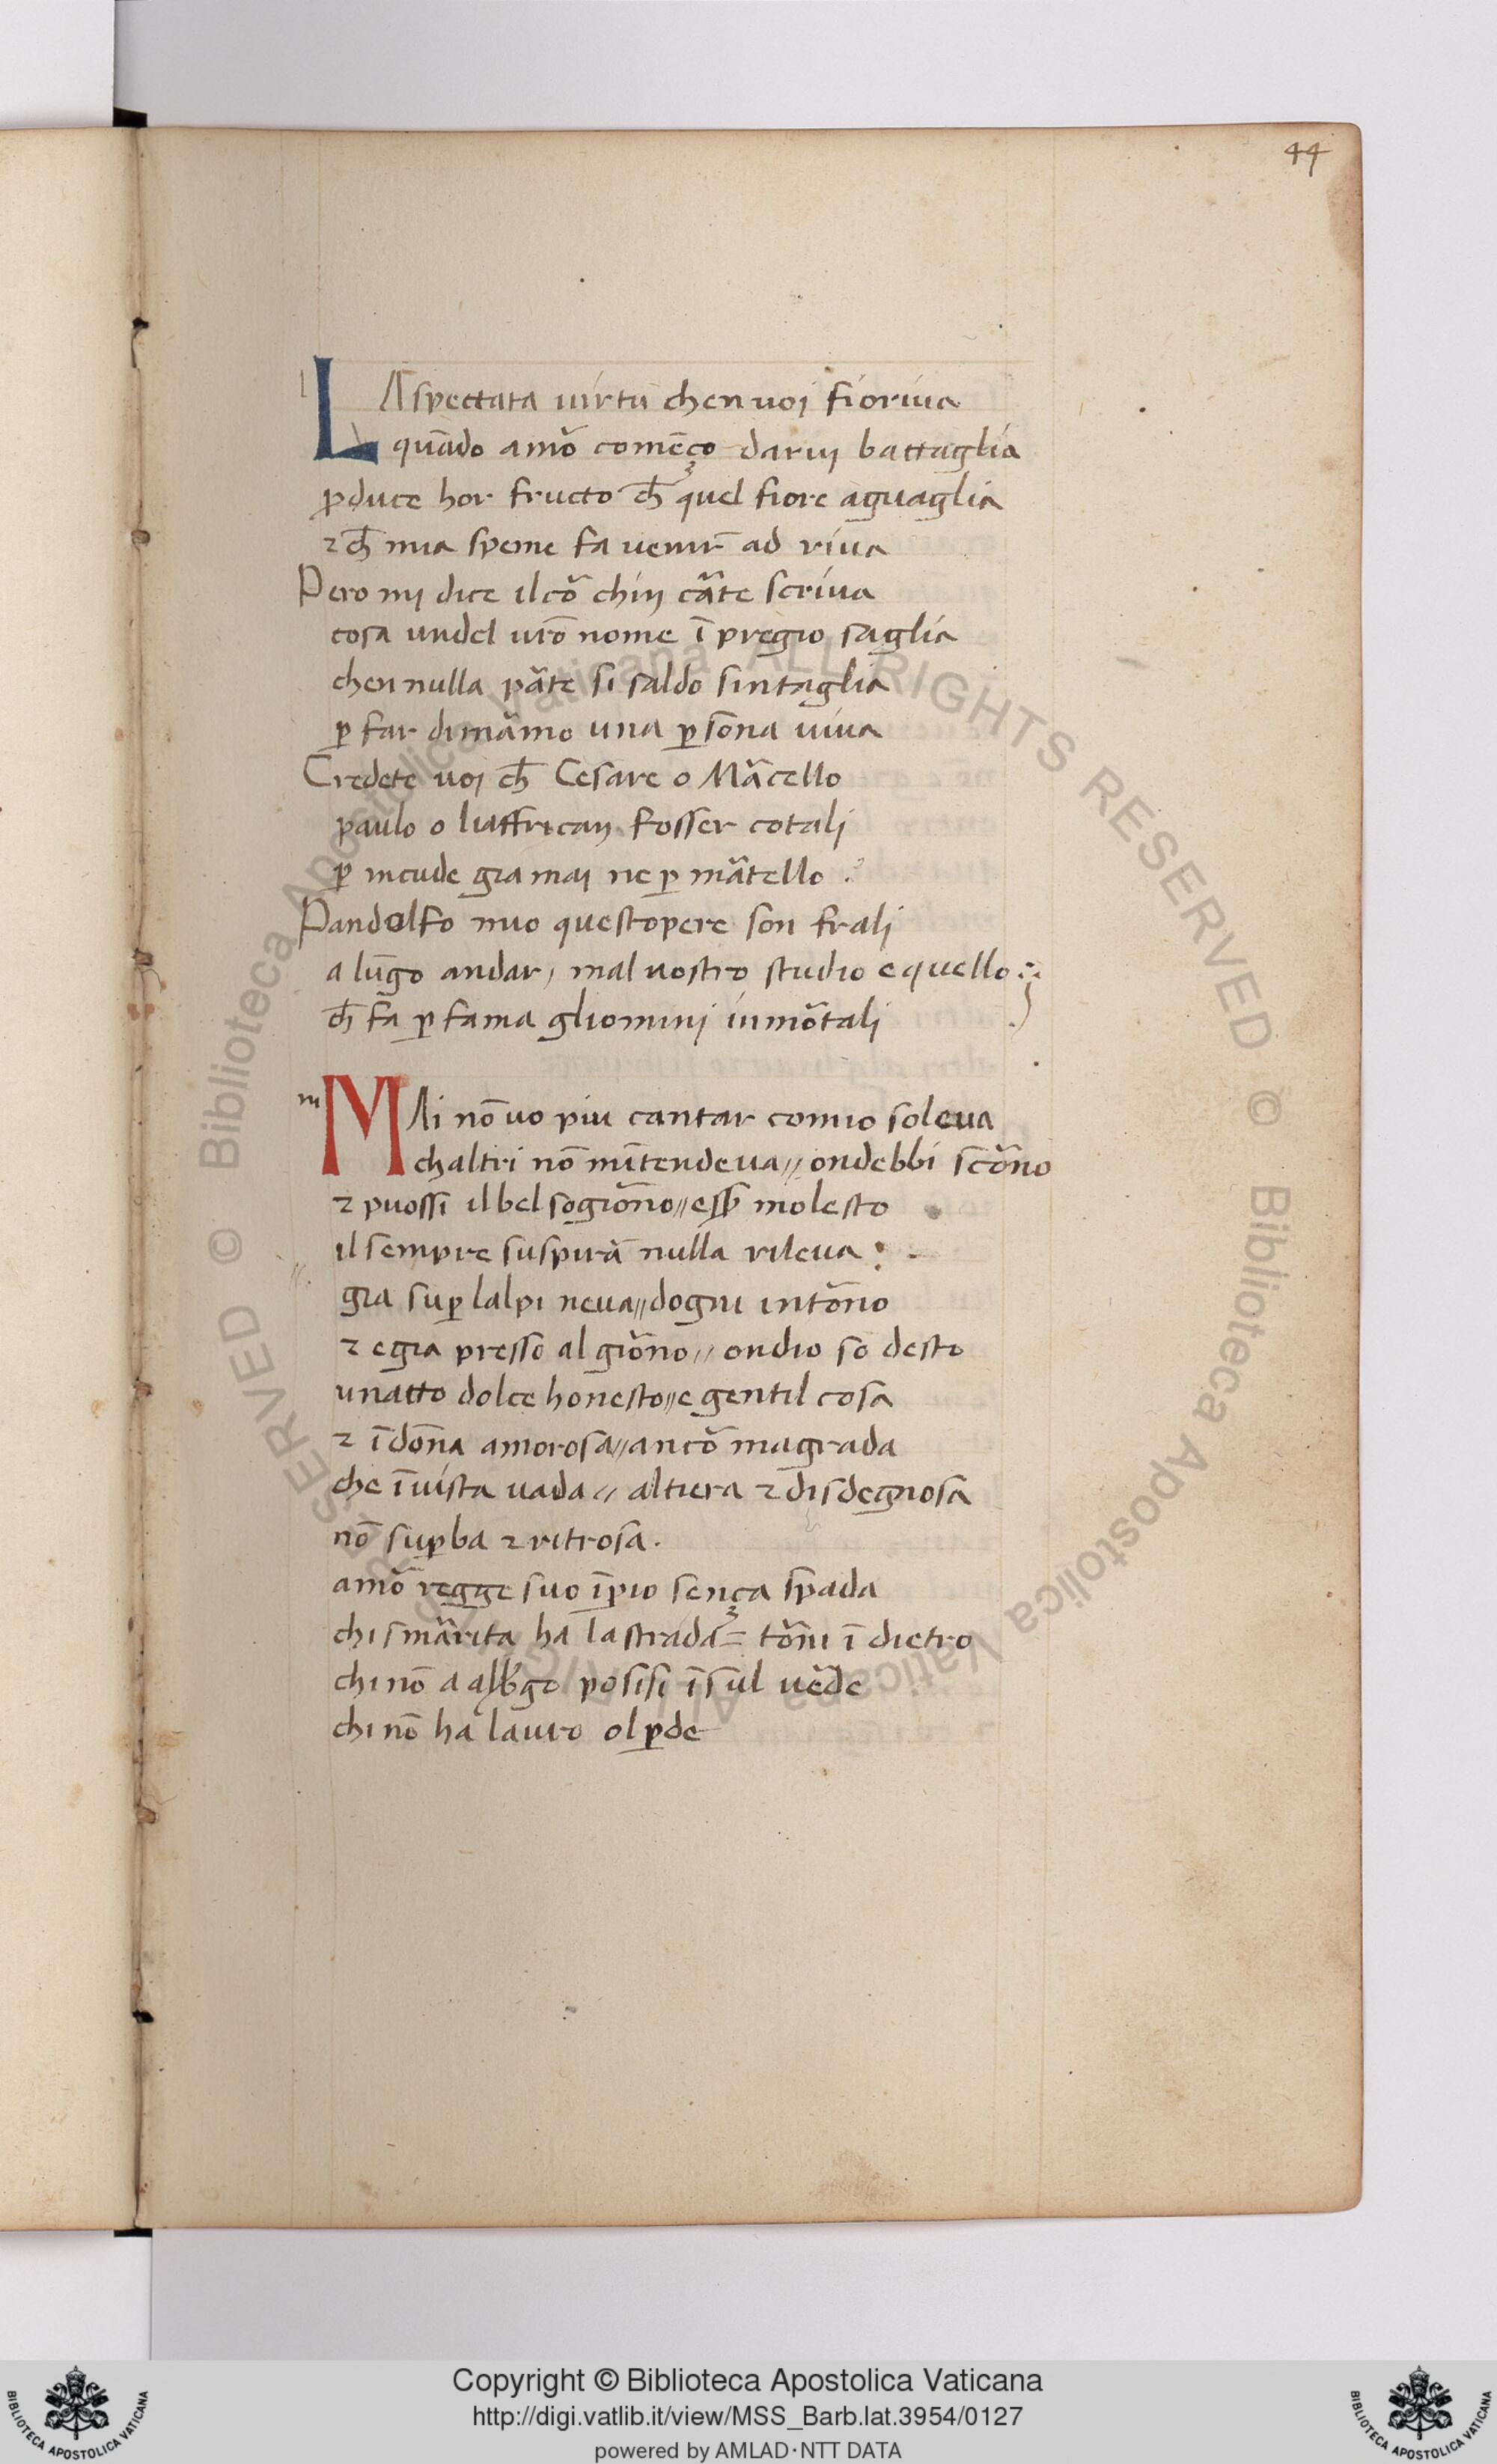 44
l
LAspectata uirtu chen uoj fioriua
quãdo amõ comẽço daruj battaglia
ꝓduce hor fructo ch̃ quel fiore aguaglia
⁊ ch̃ mia speme fa uenir̃ ad riua
Pero mj dice il cõ chĩj cãte scriua
cosa undel ur̃o nome ĩ pregio saglia
chen nulla pãte si saldo sintaglia
ꝑ far di mãmo una ꝑsõna uiua
Credete uoj ch̃ Cesare o Mãcello
paulo o luaffrican fosser cotalj
ꝑ incude gia maj ne ꝑ mãtello .
Pandolfo mio questopere son fralj
a lũgo andar, mal nostro studio e quello
ch̃ fa ꝑ fama gliominj inmõtalj
m
MAi nõ uo piu cantar comio soleua
chaltri nõ mĩtendeua // ondebbi scõno
⁊ puossi il bel sogiõno // eſſꝰ molesto
il sempre suspirã nulla rileua :
gia suꝑ lalpi neua // dogni intõno
⁊ egia presso al giõno // ondio so desto
unatto dolce honesto // e gentil cosa
⁊ ĩ dõna amorosa // ancõ magrada
che ĩ uista uada // altiera ⁊ disdegnosa
nõ suꝑba ⁊ ritrosa .
amõ regge suo ĩꝑio sença spada
chi smãrita ha la strada = tõni ĩ dietro
chi nõ a albẽgo posisi ĩ sul uẽde
chi nõ ha lauro ol ꝑde
Copyright © Biblioteca Apostolica Vaticana
http://digi.vatlib.it/view/MSS_Barb.lat.3954/0127
powered by AMLAD·NTT DATA
BIBLIOTECA APOSTOLICA VATICANA
BIBLIOTECA APOSTOLICA VATICANA